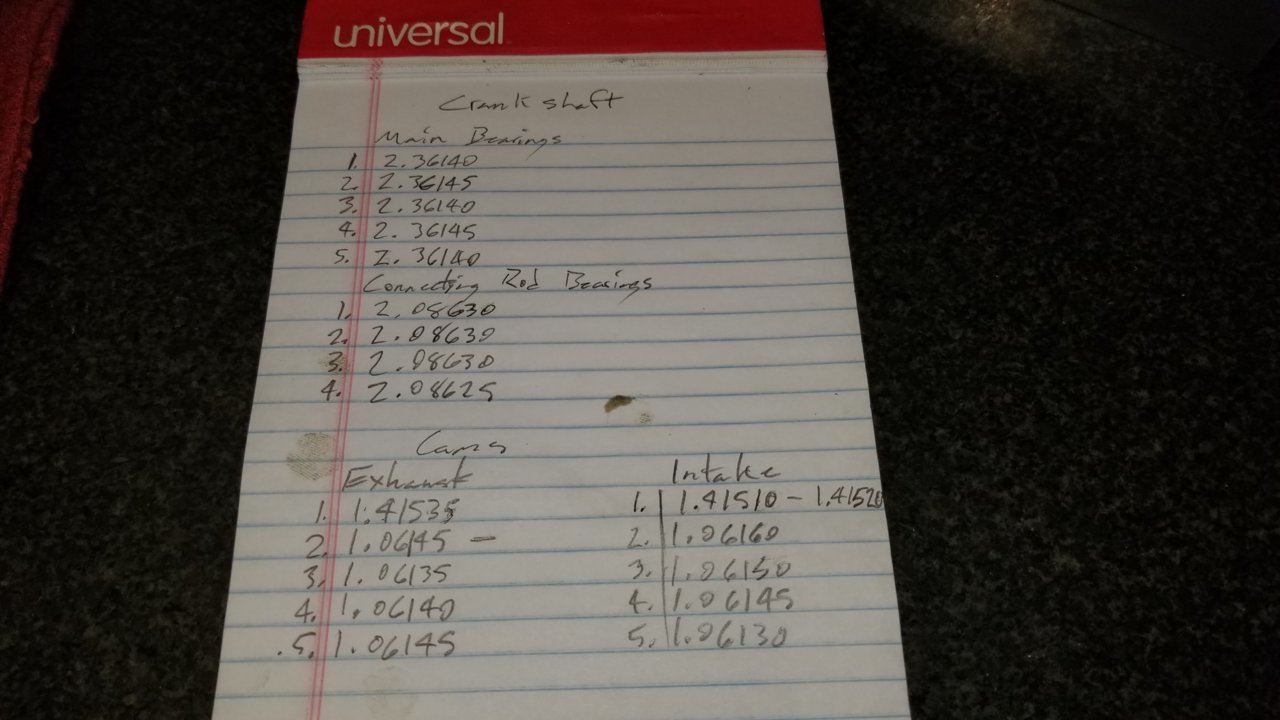 universal
Crankshaft
Main Bearings
1. 2.36140
2. 2.36145
3. 2.36140
4. 2.36145
5. 2.36140
Connecting Rod Bearings
1. 2.08630
2. 2.08630
3. 2.08630
4. 2.08625
Cams
Exhaust Intake
1. 1.41535 1. 1.41510 - 1.41520
2. 1.06145 - 2. 1.06160
3. 1.06135 3. 1.06150
4. 1.06140 4. 1.06145
5. 1.06145 5. 1.06130